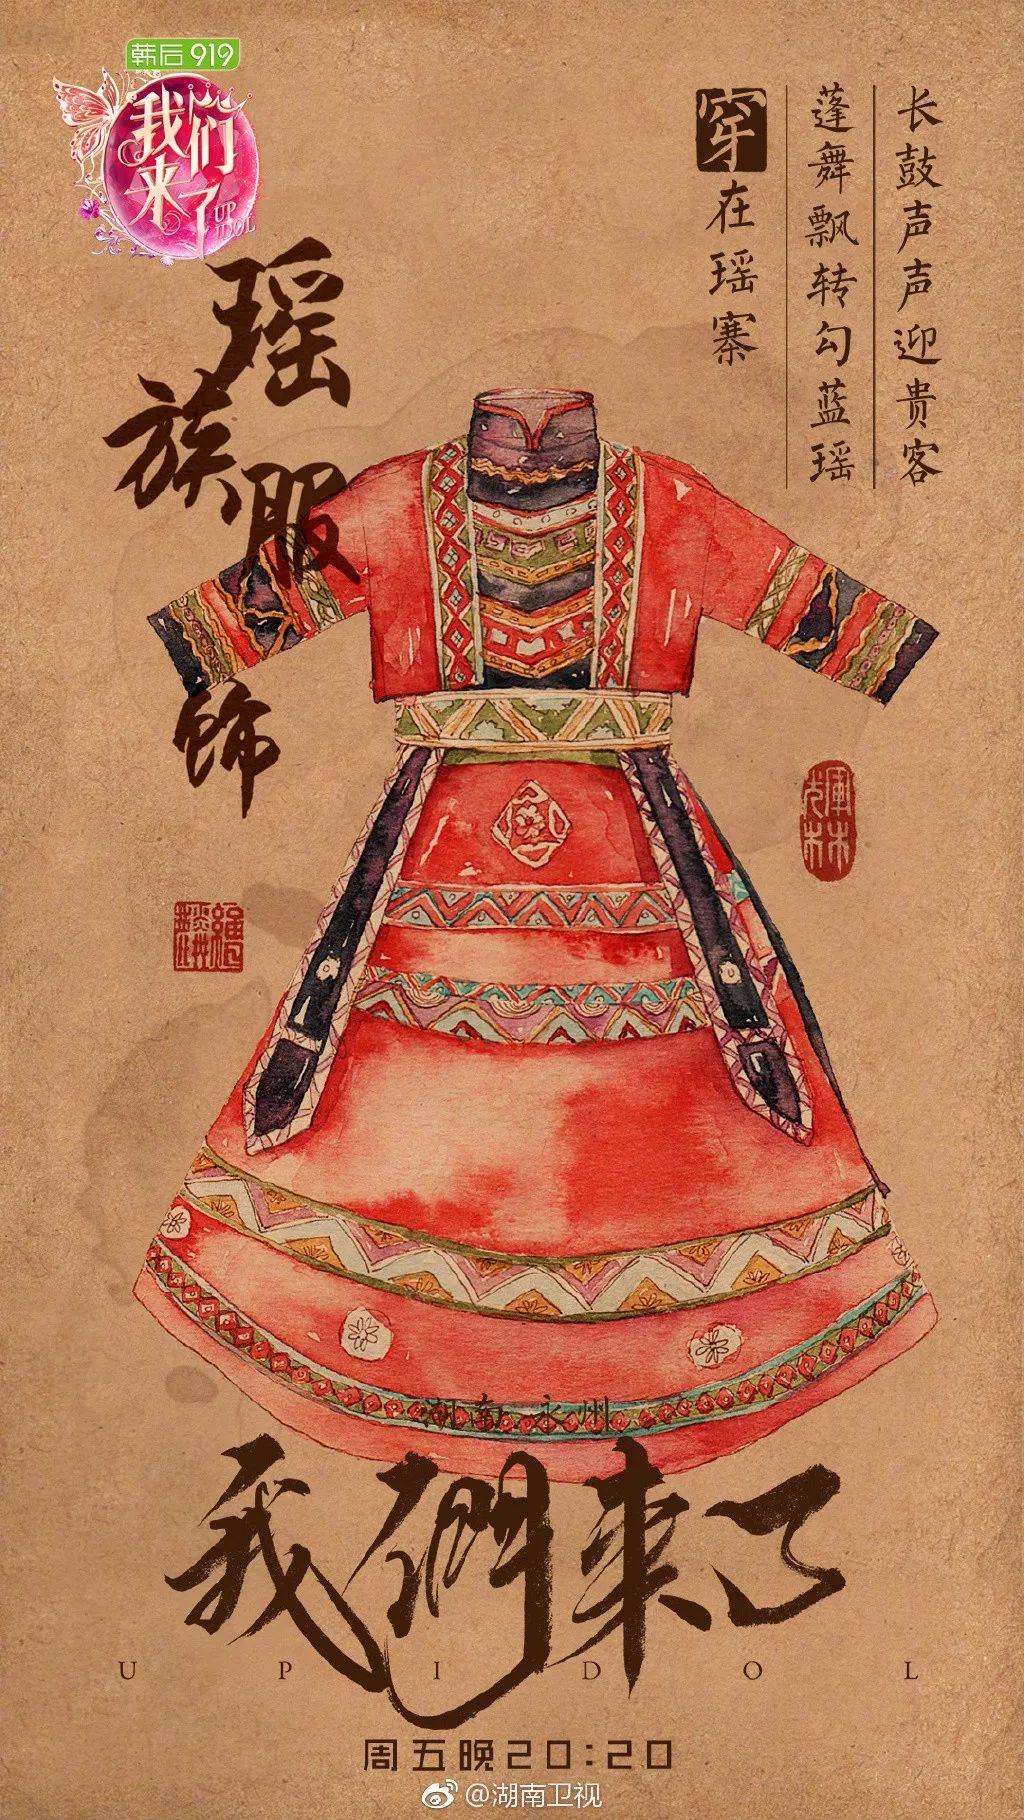 韩后 919
我们来了
UP IDOL
长鼓声声迎贵客
蓬舞飘转勾蓝瑶
穿在瑶寨
瑶族服饰
湖南 永州
我們来了
UPIDOL
周五晚20:20
@湖南卫视